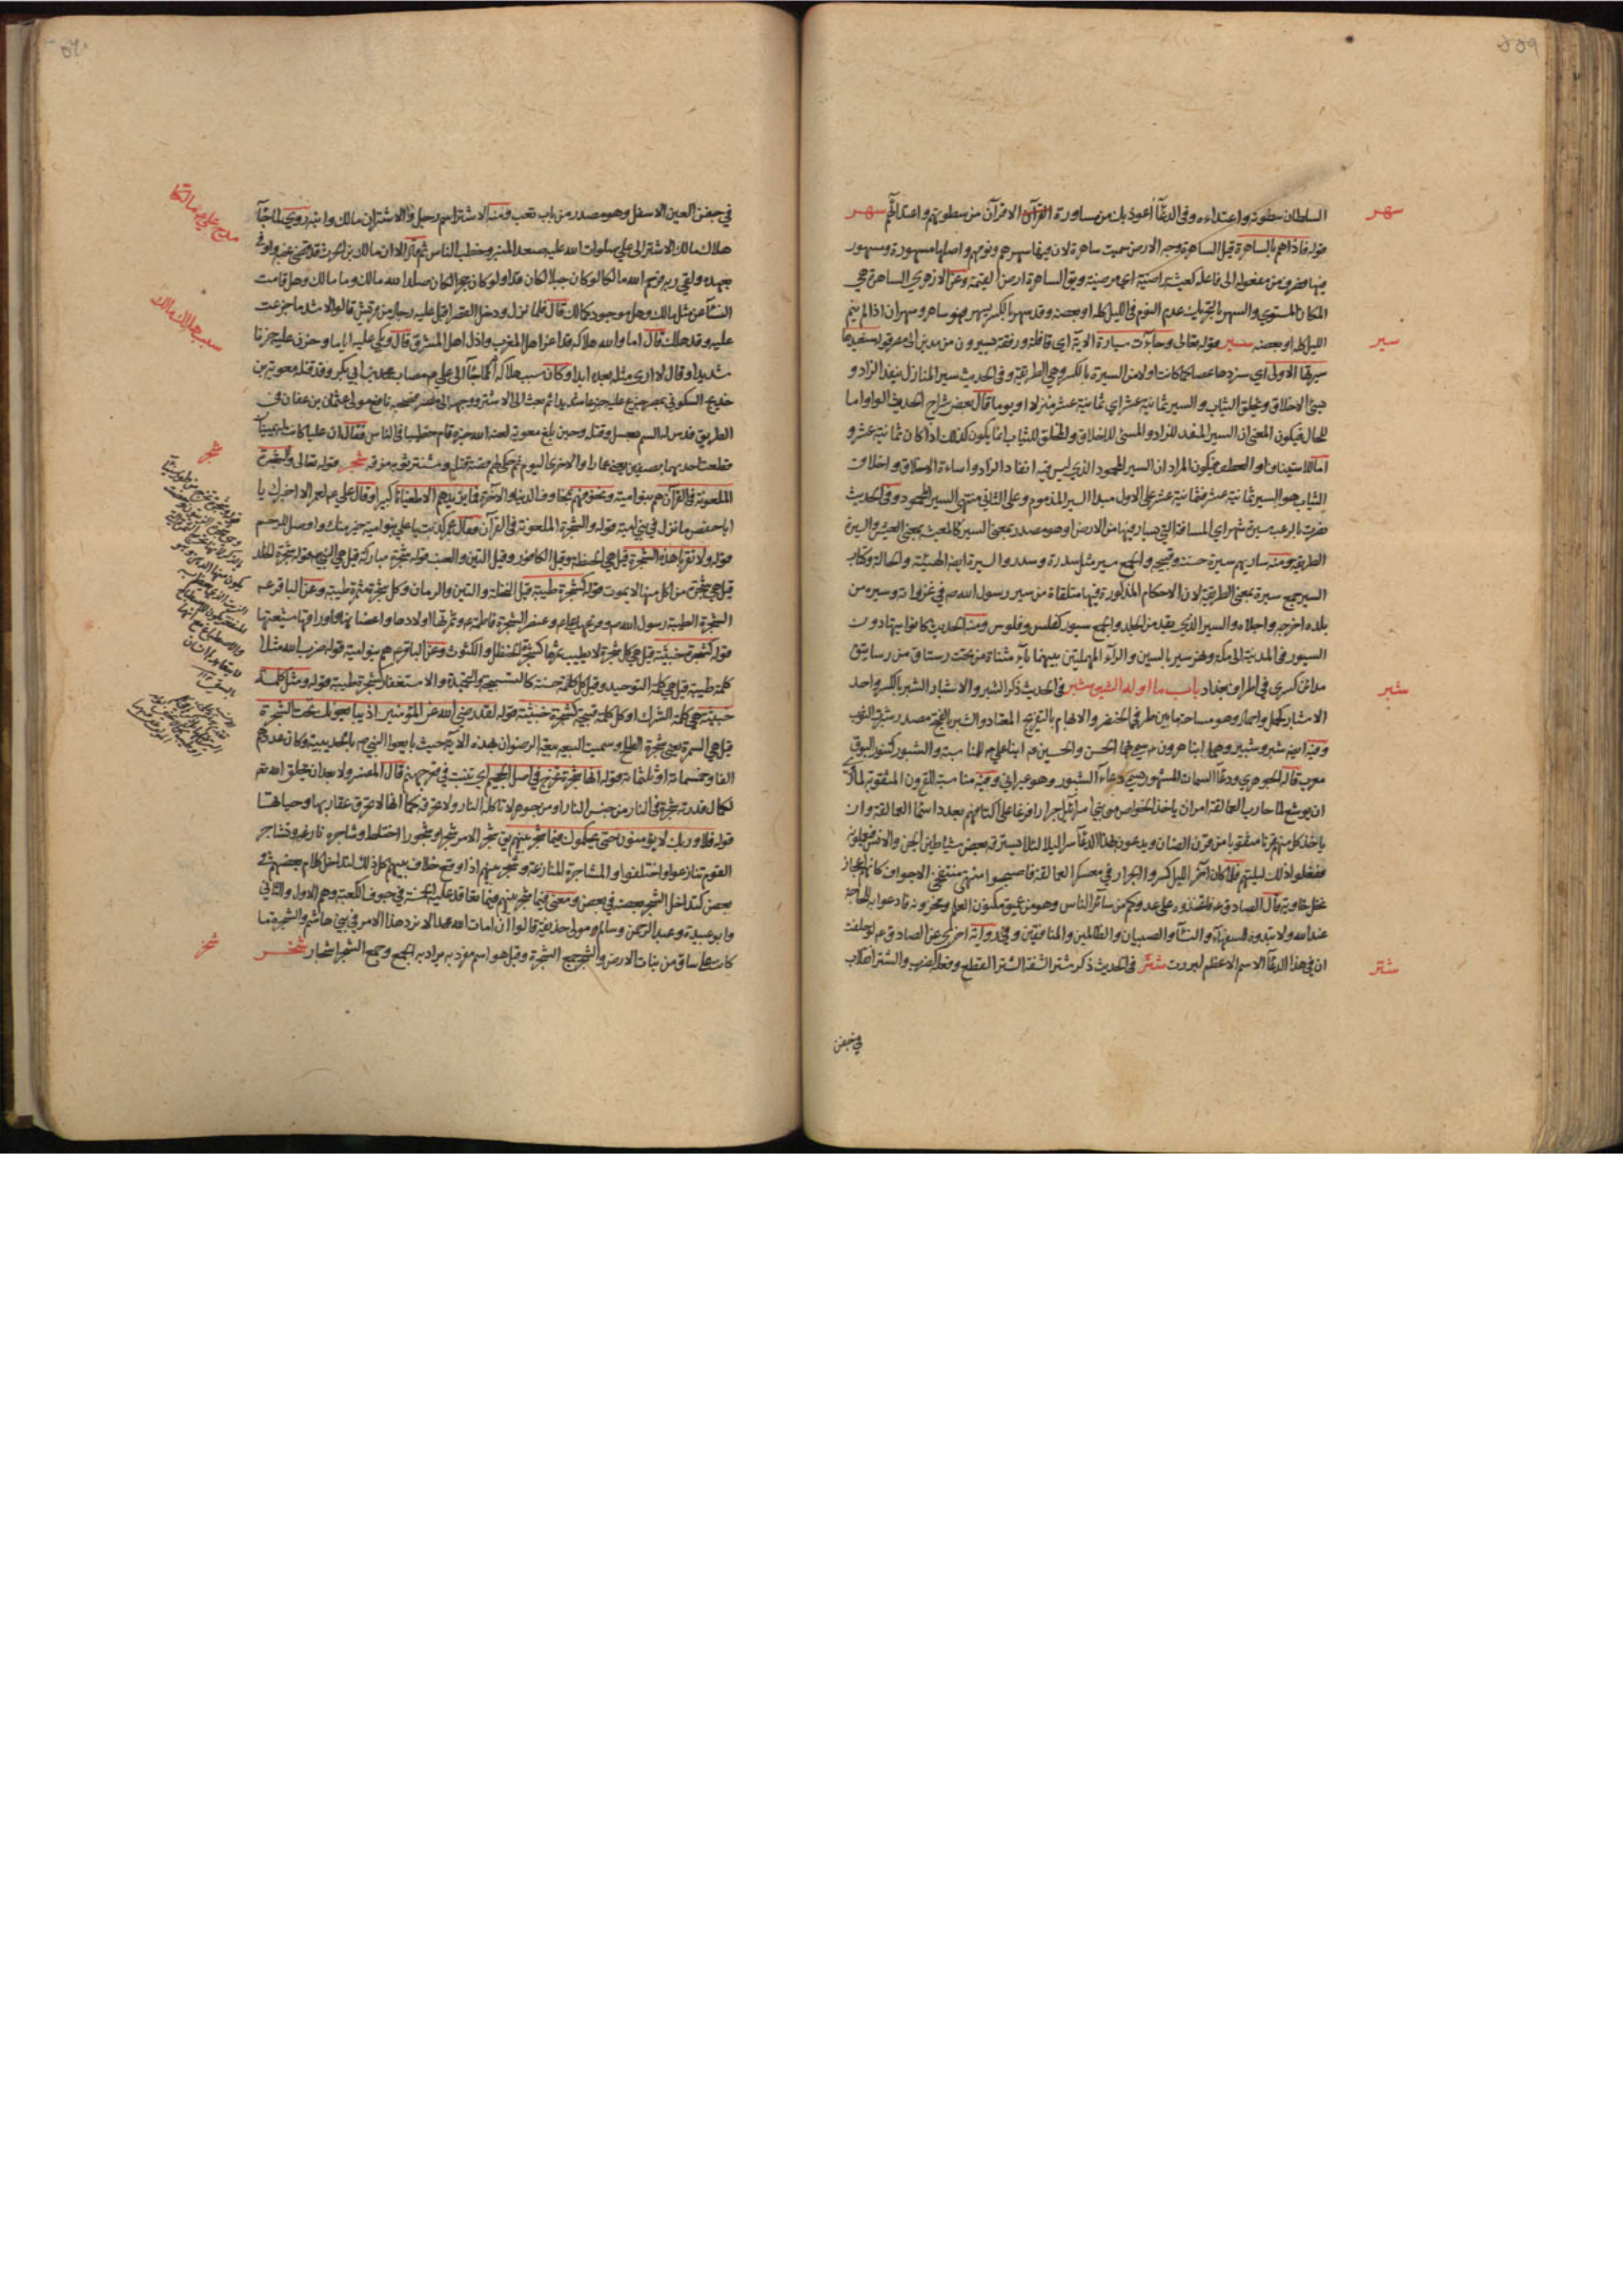 السلطان سطوته واعتداءه وفى الدعآء اعوذ بك من مساورة الاقرآن من سطوتهم واعتدائهم سهر
قوله فاذاهم بالساهرة قيل الساهرة وجه الارض سميت ساهرة لان فيها سهرهم ونومهم واصلها مسهورة ومسهور
فيها فصرف من مفعوله الى فاعله كعيشة راضية اى مرضية ويق الساهرة ارض القيمة وعن الازهري الساهرة هي
المكان المستوي والسهر بالتحريك عدم النوم فى الليل كله او بعضه وقد سهر بالكسر يسهر فهو ساهر وسهران اذا لم ينم
الليل كله او بعضه سير قوله تعالى وجاءت سيارة الاية اى قافلة ورفقة يسيرون من مدين الى مصر قوله سنعيدها
سيرتها الاولى اى سنردها عصا كما كانت اولا من السيرة بالكسر وهي الطريقة وفى الحديث سير المنازل ينفد الزاد و
يسئ الاخلاق ويخلق الثياب والسير ثمانية عشر اي ثمانية عشر منزلا او يوما قال بعض شراح الحديث الواو اما
للحال فيكون المعنى ان السير المنفد للزاد والمسئ للاخلاق والمخلق للثياب انما يكون كذلك اذا كان ثمانية عشر و
اما للاستيناف او العطف فيكون المراد ان السير المحمود الذي ليس فيه انفاد الزاد واساءة الاخلاق واخلاق
الثياب هو السير ثمانية عشر فثمانية عشر على الاول مبدا السير المذموم وعلى الثانى منتهى السير المحمود وفى الحديث
نصرت بالرعب مسيرة شهر اي المسافة التي يسار فيها من الارض او هو مصدر بمعنى السير كالمعيشة بمعنى العيش والسيرة
الطريقة ومنه سار بهم سيرة حسنة وقبيحة والجمع سير مثل سدرة وسدر والسيرة ايضا الهيئة والحالة وكتاب
السير جمع سيرة بمعنى الطريقة لان الاحكام المذكورة فيها متلقاة من سير رسول الله ص فى غزواته وسيره من
بلده اخرجه واجلاه والسير الذي يقد من الجلد والجمع سيور كفلس وفلوس ومنه الحديث كانوا يتهادون
السيور من المدينة الى مكة ونهر سير بالسين والرآء المهملتين بينهما ياء مثناة من تحت رستاق من رساتيق
مدائن كسرى فى اطراف بغداد باب ما اوله الشين شبر فى الحديث ذكر الشبر والاشبار الشبر بالكسر واحد
الاشبار كحمل واحمال وهو مساحة ما بين طرفي الخنصر والابهام بالتفريج المعتاد والشبر بالفتح مصدر شبرت الثوب
وفيه اسم شبر وشبير وهما ابنا هرون ع سمي بهما الحسن والحسين ع ابنا علي ع للمناسبة والشبور كتنور البوق
معرب قاله الجوهري ودعاء السمات المشهور يسمى دعاء الشبور وهو عبراني وفيه مناسبة للقرون المثقوبة لما
ان يوشع لما حارب العمالقة امر ان ياخذ الخواص من بني اسرائيل جرارا فرغا على اكتافهم بعدد اسماء العمالقة وان
ياخذ كل منهم قرنا مثقوبا من قرون الضان ويدعون بهذا الدعاء سرا ليلا لئلا يسترقه بعض شياطين الجن والانس فيعلمون
ففعلوا ذلك ليلتهم فلما كان آخر الليل كسروا الجرار فى معسكر العمالقة فاصبحوا موتى منتفخي الاجواف كانهم اعجاز
نخل خاوية قال الصادق ع فاتخذوه على عدوكم من سائر الناس وهو من عميق مكنون العلم ومخزونه فادعوا به للحاجة
عند الله ولا تبدوه للسفهاء والنساء والصبيان والظالمين والمنافقين وفى رواية اخرى عن الصادق ع لو حلفت
ان فى هذا الدعاء الاسم الاعظم لبررت شتر فى الحديث ذكر شتر الشفة الشتر القطع وفعله كضرب والشتر انقلاب
فى جفن
سهر
سير
شبر
شتر
في جفن العين الاسفل وهو مصدر من باب تعب ومنه الاشتر اسم رجل والاشتران مالك وابنه روى لما جاء
هلاك مالك الاشتر الى علي صلوات الله عليه صعد المنبر وخطب الناس ثم قال الا ان مالك بن الحرث قد قضى نحبه واوفى
عهده ولقي ربه فرحم الله مالكا لو كان جبلا لكان فذا ولو كان حجرا لكان صلدا لله مالك وما مالك وهل قامت
النساء عن مثل مالك وهل موجود كمالك قال فلما نزل ودخل القصر اقبل عليه رجال من قريش قالوا لاشد ما جزعت
عليه وقد هلك قال اما والله هلاكه قد اعز اهل المغرب واذل اهل المشرق قال وبكى عليه اياما وحزن عليه حزنا
شديدا وقال لا ارى مثله بعده ابدا وكان سبب هلاكه لما جاء الى علي ع مصاب محمد بن ابي بكر وقد قتله معوية بن
خديج السكوني بمصر جزع عليه جزعا شديدا ثم بعث الى الاشتر ووجهه الى مصر فصحبه نافع مولى عثمان بن عفان فى
الطريق فدس له السم بعسل وقتله وحين بلغ معوية لعنه الله خبره قام خطيبا فى الناس فقال ان عليا كانت له يمينان
قطعت احديهما بصفين يعني عمارا والاخرى اليوم ثم حكى لهم قصة قتله ومشتر ثوبه مزقه شجر قوله تعالى والشجرة
الملعونة فى القرآن هم بنو امية
اباحفص ما نزل فى بني امية قوله والشجرة الملعونة فى القرآن فقال
قوله ولا تقربا هذه الشجرة قيل هي الحنطة وقيل الكافور وقيل التين والعنب قوله شجرة مباركة قيل هي
قيل هي شجرة من اكل منها لا يموت قوله كشجرة طيبة قيل النخلة والتين والرمان وكل شجرة مثمرة طيبة وعن الباقر ع
الشجرة الطيبة رسول الله ص وفرعها علي ع وعنصر الشجرة فاطمة ع وثمرتها اولادها واغصانها واوراقها شيعتها
قوله كشجرة خبيثة قيل هي كل شجرة لا يطيب ثمرها كشجرة الحنظل والكشوث وعن الباقر ع هم بنو امية قوله ضرب الله مثلا
كلمة طيبة قيل هي كلمة التوحيد وقيل كل كلمة حسنة كالتسبيحة والتحميدة والاستغفار كشجرة طيبة قوله ومثل كلمة
خبيثة هي كلمة الشرك او كل كلمة قبيحة كشجرة خبيثة قوله لقد رضي الله عن المؤمنين اذ يبايعونك تحت الشجرة
قيل هي السمرة يعني شجرة الطلح وسميت البيعة بيعة الرضوان بهذه الاية حيث بايعوا النبي ص بالحديبية وكان عددهم
الفا وخمسمائة او ثلثمائة قوله انها شجرة تخرج فى اصل الجحيم اي تنبت فى قعر جهنم قال المفسر ولا بعد ان يخلق الله
لكمال قدرته شجرة فى النار من جنس النار او من جوهر لا تاكله النار ولا تحرقه كما انها لا تحرق عقاربها وحياتها
قوله فلا وربك لا يؤمنون حتى يحكموك فيما شجر بينهم يق شجر الامر شجرا وشجورا اختلط وشاجره نازعه وتشاجر
القوم تنازعوا واختلفوا والمشاجرة المنازعة وشجر بينهم اذا وقع خلاف بينهم كل ذلك لتداخل كلام بعضهم فى
بعض كتداخل الشجر بعضه فى بعض ومعنى فيما شجر بينهم فيما تعاقد عليه الخمسة فى جوف الكعبة وهم الاول والثاني
وابو عبيدة وعبد الرحمن وسالم مولى حذيفة قالوا ان امات الله محمدا لا نرد هذا الامر فى بني هاشم والشجرة ما
كان على ساق من نبات الارض والشجر جمع الشجرة وقيل هو اسم مفرد يراد به الجمع وجمع الشجر اشجار شخر
سبب هلاك مالك
شجر
شخر